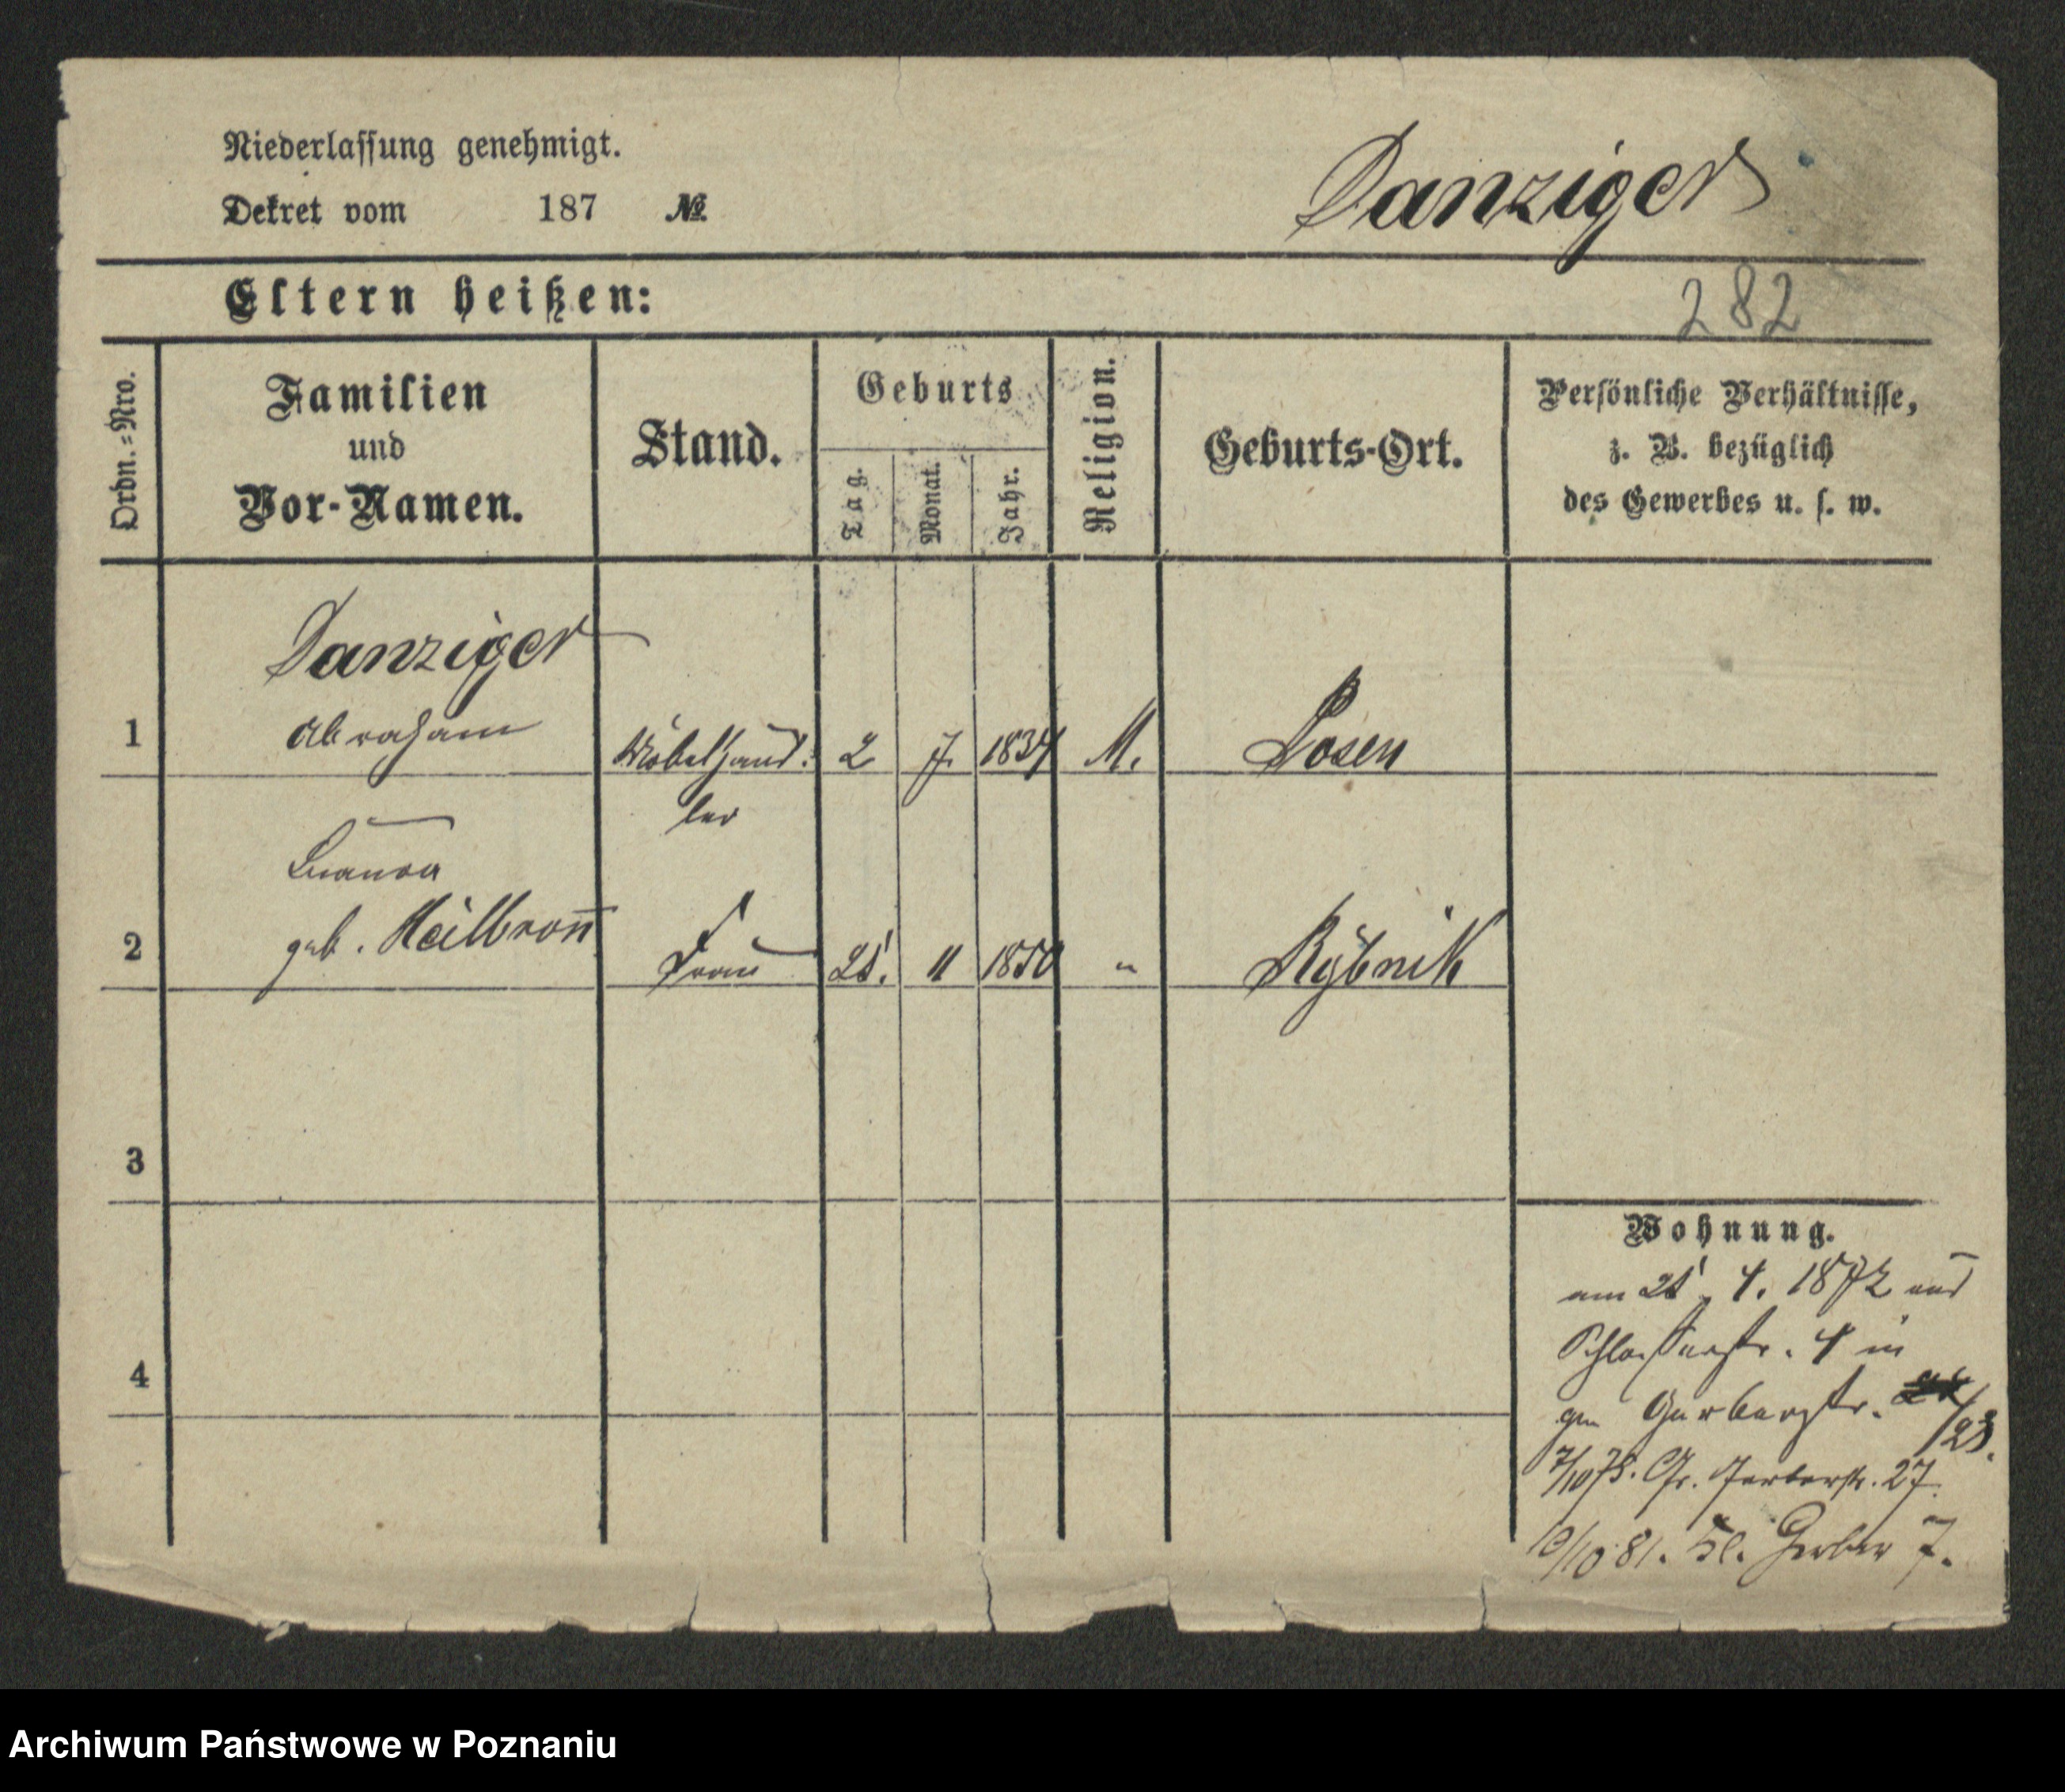 Niederlassung genehmigt.
Dekret vom 187 №
Danziger
Eltern heißen:
282
Ordn.=Nro.
Familien
und
Vor-Namen.
Stand.
Geburts
Tag.
Monat.
Jahr.
Religion.
Geburts-Ort.
Persönliche Verhältnisse,
z. B. bezüglich
des Gewerbes u. s. w.
Danziger
1 Abraham Möbelhänd= 2 7. 1834 M. Posen
ler
2 geb. Heilbron̅ Frau 25. 11 1850 " Rybnik
3
4
Wohnung.
am 25. 4. 1872 aus
Schlosserstr. 4 in
Gerberstr. 23.
7/10 75. Gr. Gerberstr. 27.
10/10 81. Kl. Gerber 7.
Archiwum Państwowe w Poznaniu